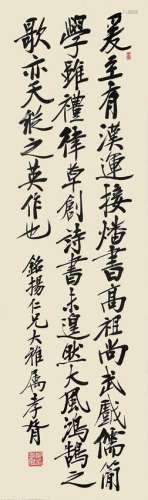 爰至有漢運接燔書高祖尚武戲儒簡
學雖禮律草創詩書未遑然大風鴻鵠之
歌亦天縱之英作也
銘揚仁兄大雅屬孝胥